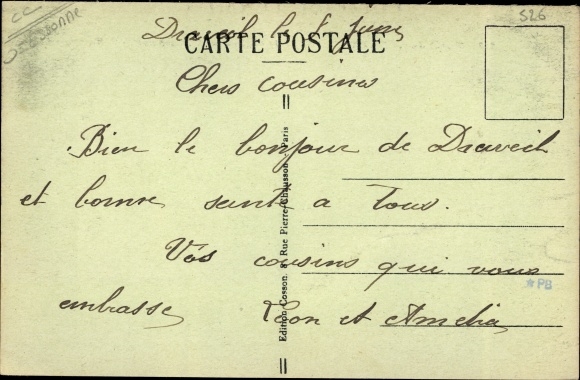 CC
ESSONNE
526
Draveil le 8 Juin
CARTE POSTALE
Chers cousins
Bien le bonjour de Draveil
et bonne santé a Tous.
Vos cousins qui vous
embrasse Léon et Amelia
*PB
Edition Cosson. 8, Rue Pierre-Chausson, Paris